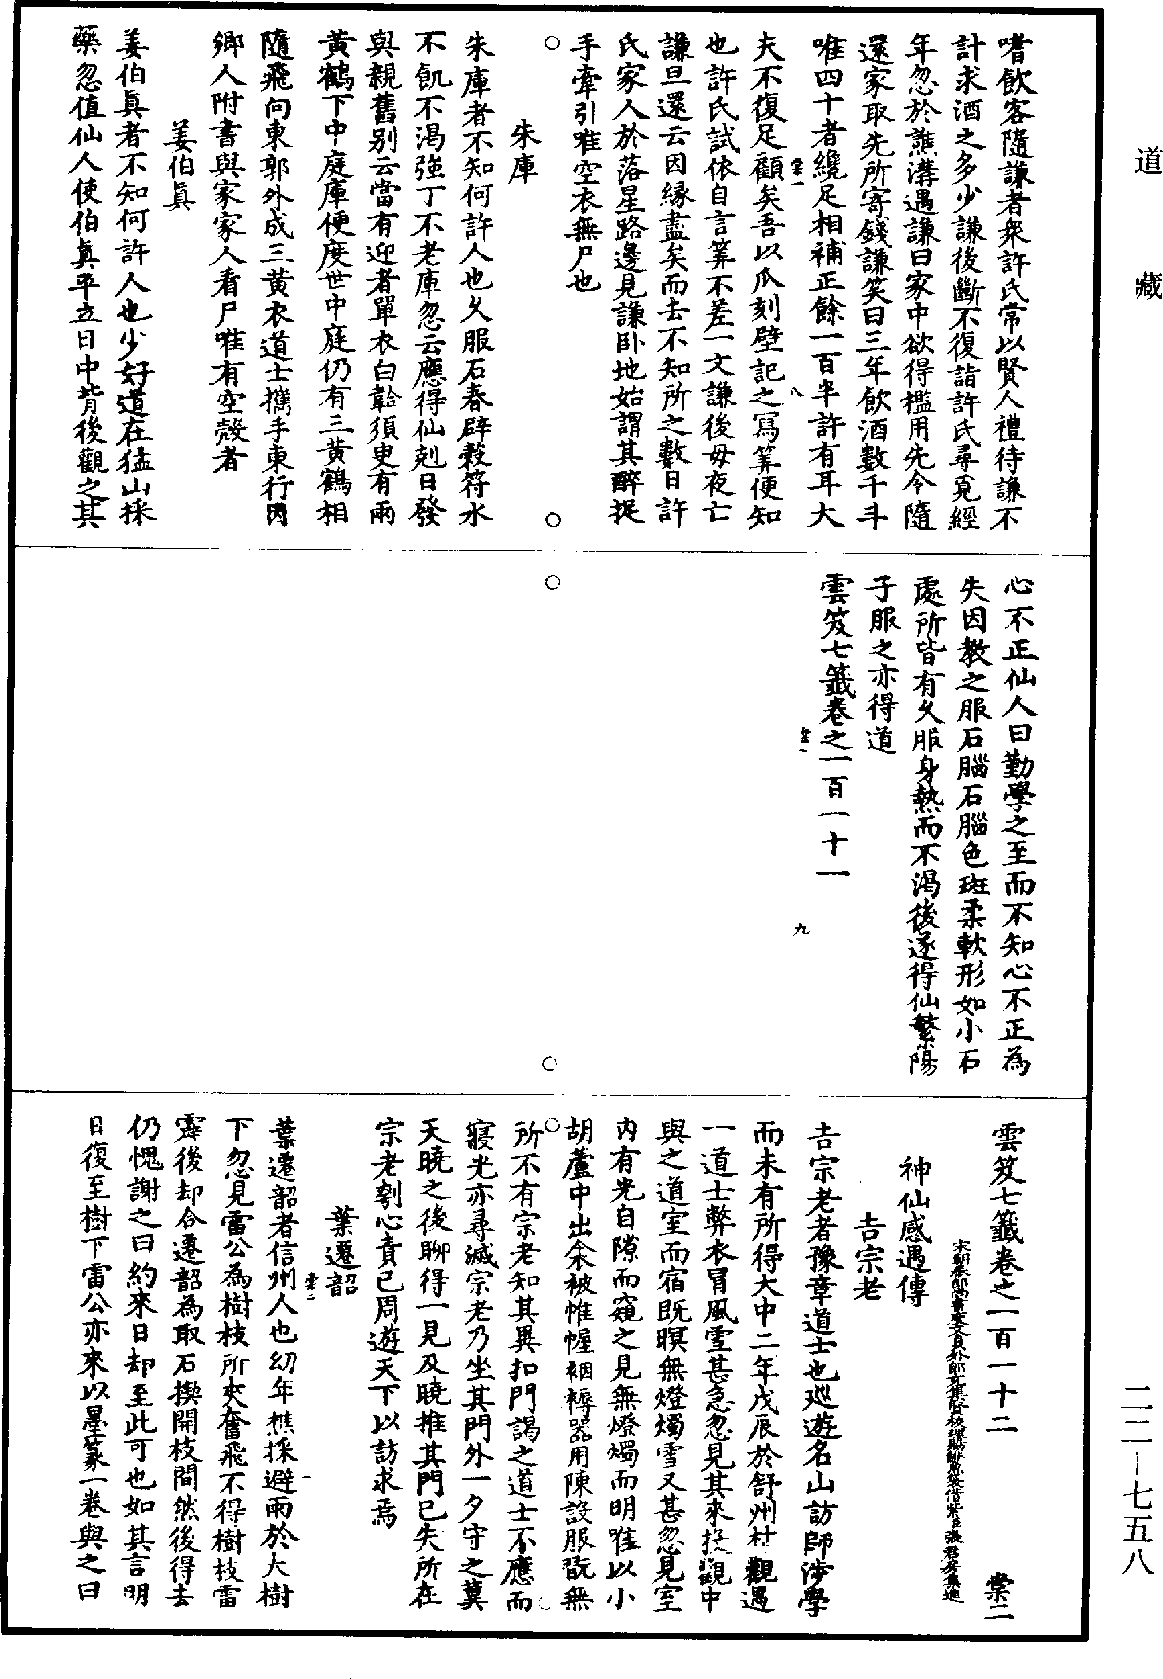 道藏
嗜飲客隨謙者衆許氏常以賢人禮待謙不
計求酒之多少謙後斷不復詣許氏尋覓經
年忽於譙溝遇謙曰家中欲得檻用先今隨
還家取先所寄錢謙笑曰三年飲酒數千斗
唯四十者纔足相補正餘一百半許有耳大
棠一 八
夫不復足顧矣吾以爪刻壁記之寫筭便知
也許氏試依自言筭不差一文謙後毋夜亡
謙旦還云因緣盡矣而去不知所之數日許
氏家人於落星路邊見謙卧地始謂其醉捉
手牽引唯空衣無尸也
朱庫
朱庫者不知何許人也久服石春辟穀符水
不飢不渴強丁不老庫忽云應得仙剋日發
與親舊別云當有迎者單衣白幹須臾有兩
黃鶴下中庭庫便度世中庭仍有三黃鶴相
隨飛向東郭外成三黃衣道士攜手東行因
鄉人附書與家家人看尸唯有空殼者
姜伯真
姜伯真者不知何許人也少好道在猛山採
藥忽值仙人使伯真平立日中背後觀之其
心不正仙人曰勤學之至而不知心不正為
失因教之服石腦石腦色斑柔軟形如小石
處所皆有久服身熱而不渴後遂得仙繁陽
子服之亦得道
雲笈七籤卷之一百一十一
棠一 九
雲笈七籤卷之一百一十二 棠二
神仙感遇傳
吉宗老
吉宗老者豫章道士也巡遊名山訪師涉學
而未有所得大中二年戊辰於舒州村觀遇
一道士弊衣冒風雪甚急忽見其來投觀中
與之道室而宿既暝無燈燭雪又甚忽見室
內有光自隙而窺之見無燈燭而明唯以小
胡蘆中出衾被帷幄裀褥器用陳設服翫無
所不有宗老知其異扣門謁之道士不應而
寢光亦尋滅宗老乃坐其門外一夕守之冀
天曉之後聊得一見及曉推其門已失所在
宗老刳心責己周遊天下以訪求焉
葉遷韶
棠二 一
葉遷韶者信州人也幼年樵採避雨於大樹
下忽見雷公為樹枝所夾奮飛不得樹枝雷
霹後却合遷韶為取石揳開枝間然後得去
仍愧謝之曰約來日却至此可也如其言明
日復至樹下雷公亦來以墨篆一卷與之曰
二二-七五八